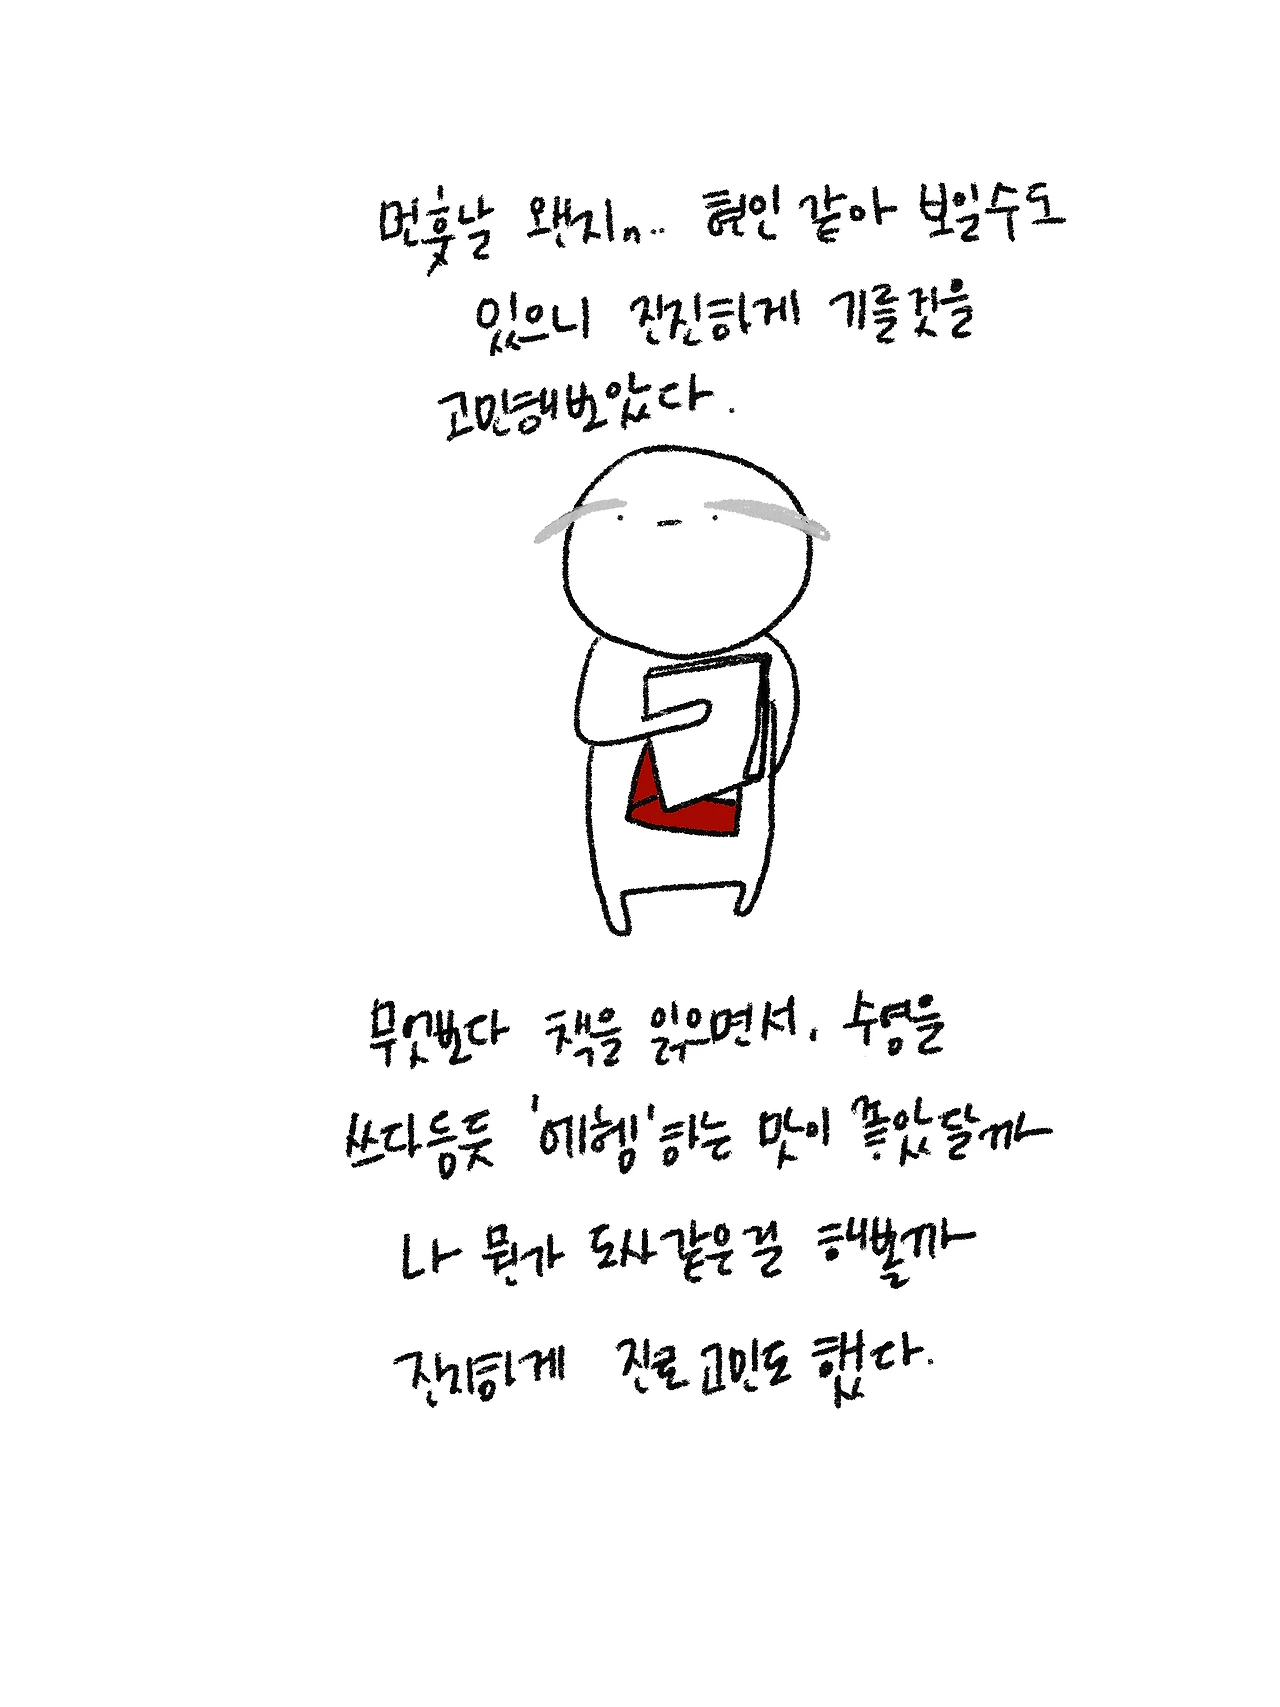 먼훗날 왠지... 현인 같아 보일수도
있으니 진진하게 기를것을
고민해보았다.
무엇보다 책을 읽으면서, 수염을
쓰다듬듯 '에헴'하는 맛이 좋았달까
나 뭔가 도사같은걸 해볼까
잔지하게 진로고민도 했다.